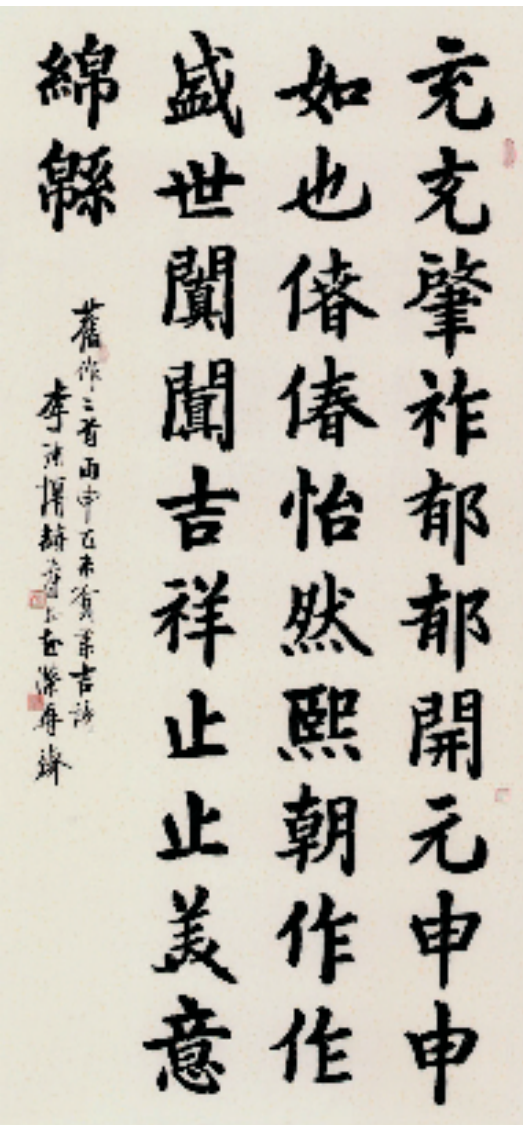 充充肇祚郁郁開元申申
如也偆偆怡然熙朝作作
盛世闐闐吉祥止止美意
綿緜
舊作二首丙申乙未賀業吉語
李